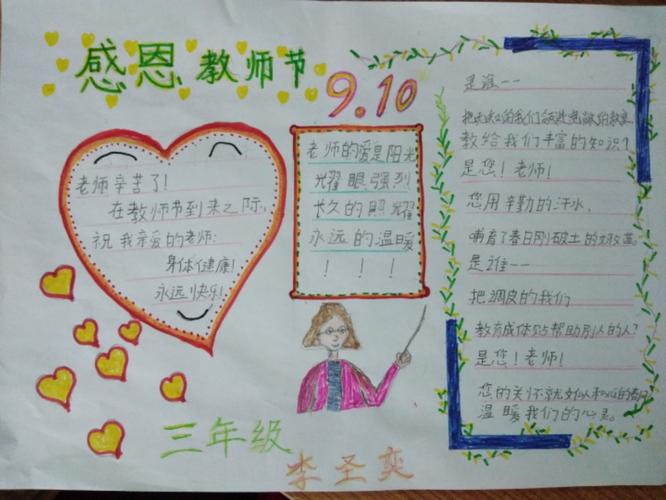 感恩教师节
9.10
老师辛苦了!
在教师节到来之际,
祝我亲爱的老师:
身体健康!
永远快乐!
老师的爱是阳光
耀眼强烈
长久的照耀
永远的温暖
!!!
是谁——
把 的我们 的教室
教给我们丰富的知识?
是您!老师!
您用辛勤的汗水,
哺育了春日刚破土的
是谁——
把调皮的我们
教育成体贴帮助别人的人?
是您!老师!
您的关怀就 的春风
温暖我们的心灵。
三年级
李圣奕